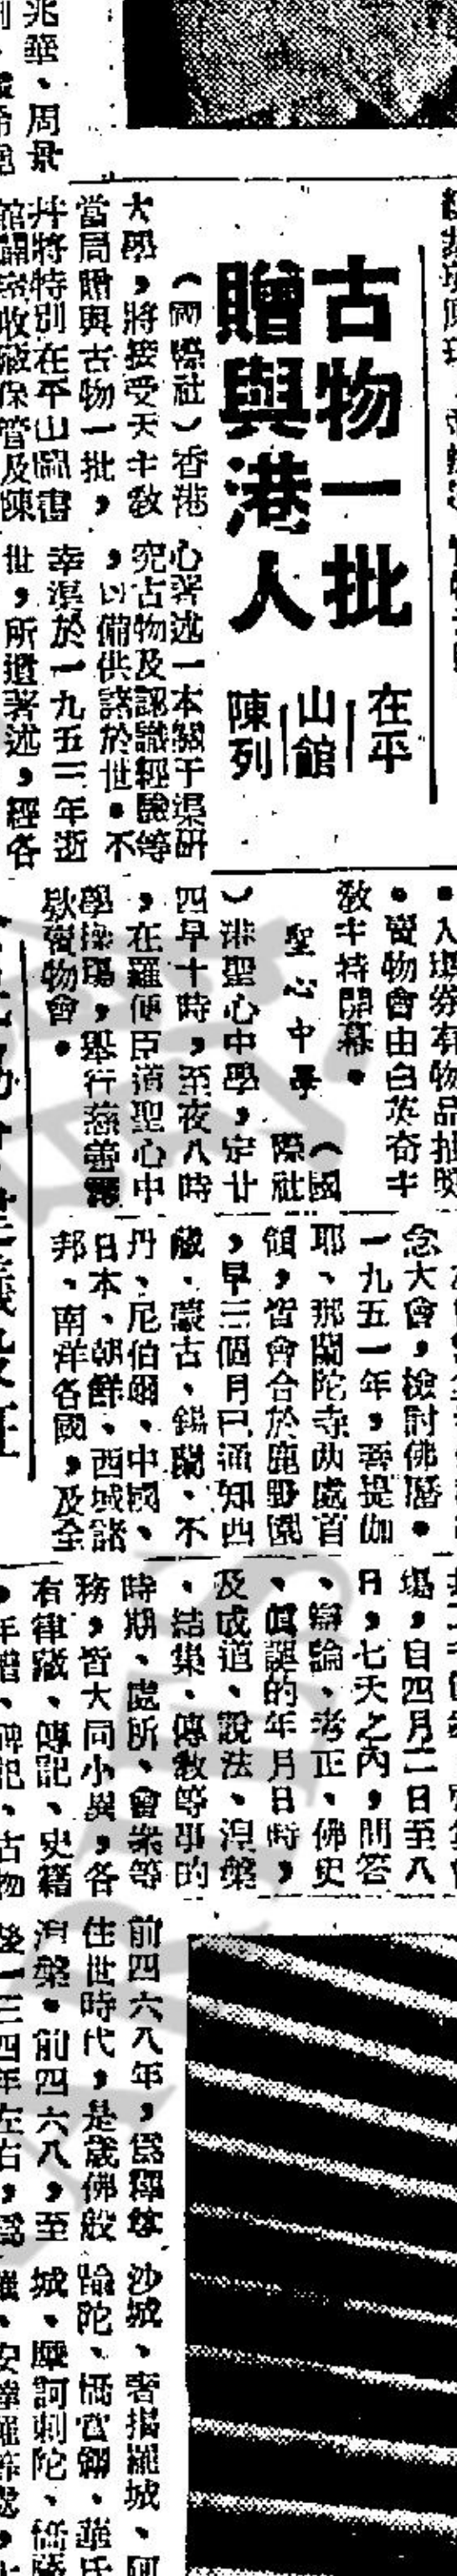 兆華、周景
古物一批
贈與港人
在平
山館
陳列
（國際社）香港
大學，將接受天主教
當局贈與古物一批，
并將特別在平山圖書
館闢室收藏保管及陳
心著述一本關于渠研
究古物及認識經驗等
，以備供諸於世。不
幸渠於一九五三年逝
世，所遺著述，經各
。入場券有物品抽獎
。賣物會由白英奇主
教主持開幕。
聖心中學
（國
際社
）港聖心中學，定廿
四早十時，至夜八時
，在羅便臣道聖心中
學操場，舉行慈善
獻賣物會。
念大會，檢討佛曆。
一九五一年，菩提伽
耶、那蘭陀寺兩處首
領，皆會合於鹿野園
，早三個月已通知西
藏、蒙古、錫蘭、不
丹、尼伯爾、中國、
日本、朝鮮、西域諸
邦、南洋各國，及全
場，自四月二日至八
日，七天之內，問答
、辯論、考正、佛史
、眞誕的年月日時，
及成道、說法、湼槃
、結集、傳敎等事的
時期、處所、會衆等
務，皆大同小異，各
有律藏、傳記、史籍
，年譜、碑記、古物
前四六八年，爲釋尊
住世時代，是歲佛般
湼槃。前四六八，至
後一三四年左右，爲
沙城、奢揭羅城、阿
踰陀、憍賞彌、華氏
城、摩訶剌陀、